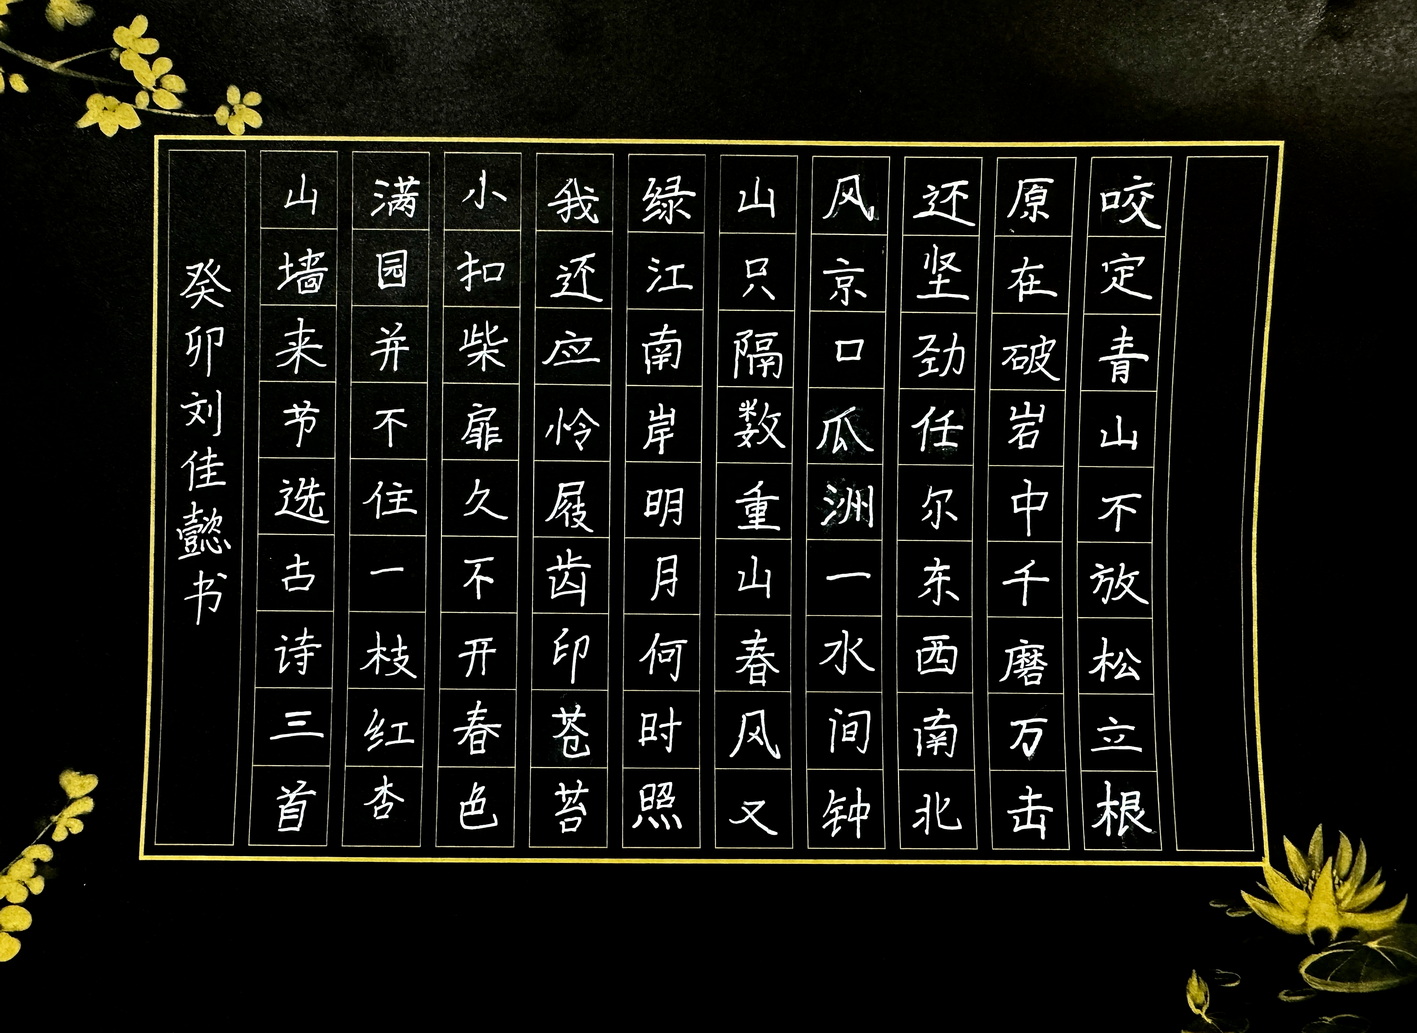 咬定青山不放松立根
原在破岩中千磨万击
还坚劲任尔东西南北
风京口瓜洲一水间钟
山只隔数重山春风又
绿江南岸明月何时照
我还应怜屐齿印苍苔
小扣柴扉久不开春色
满园并不住一枝红杏
山墙来节选古诗三首
癸卯刘佳懿书